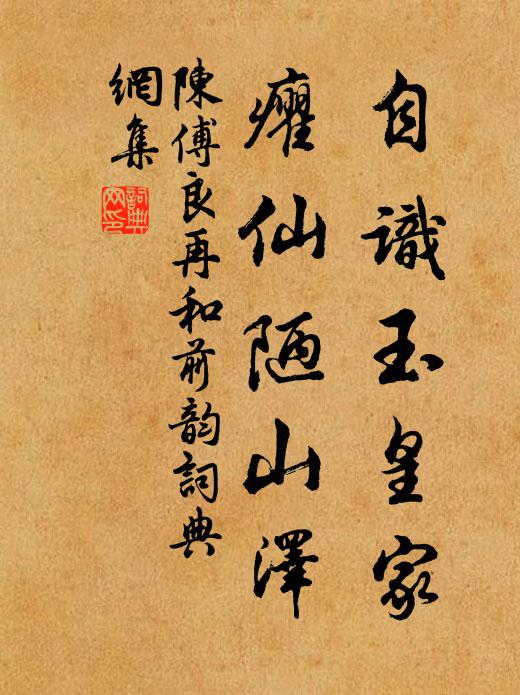 自識玉皇家
癯仙陋山澤
陳傅良再和前韵詞典
網集
詞典
网印